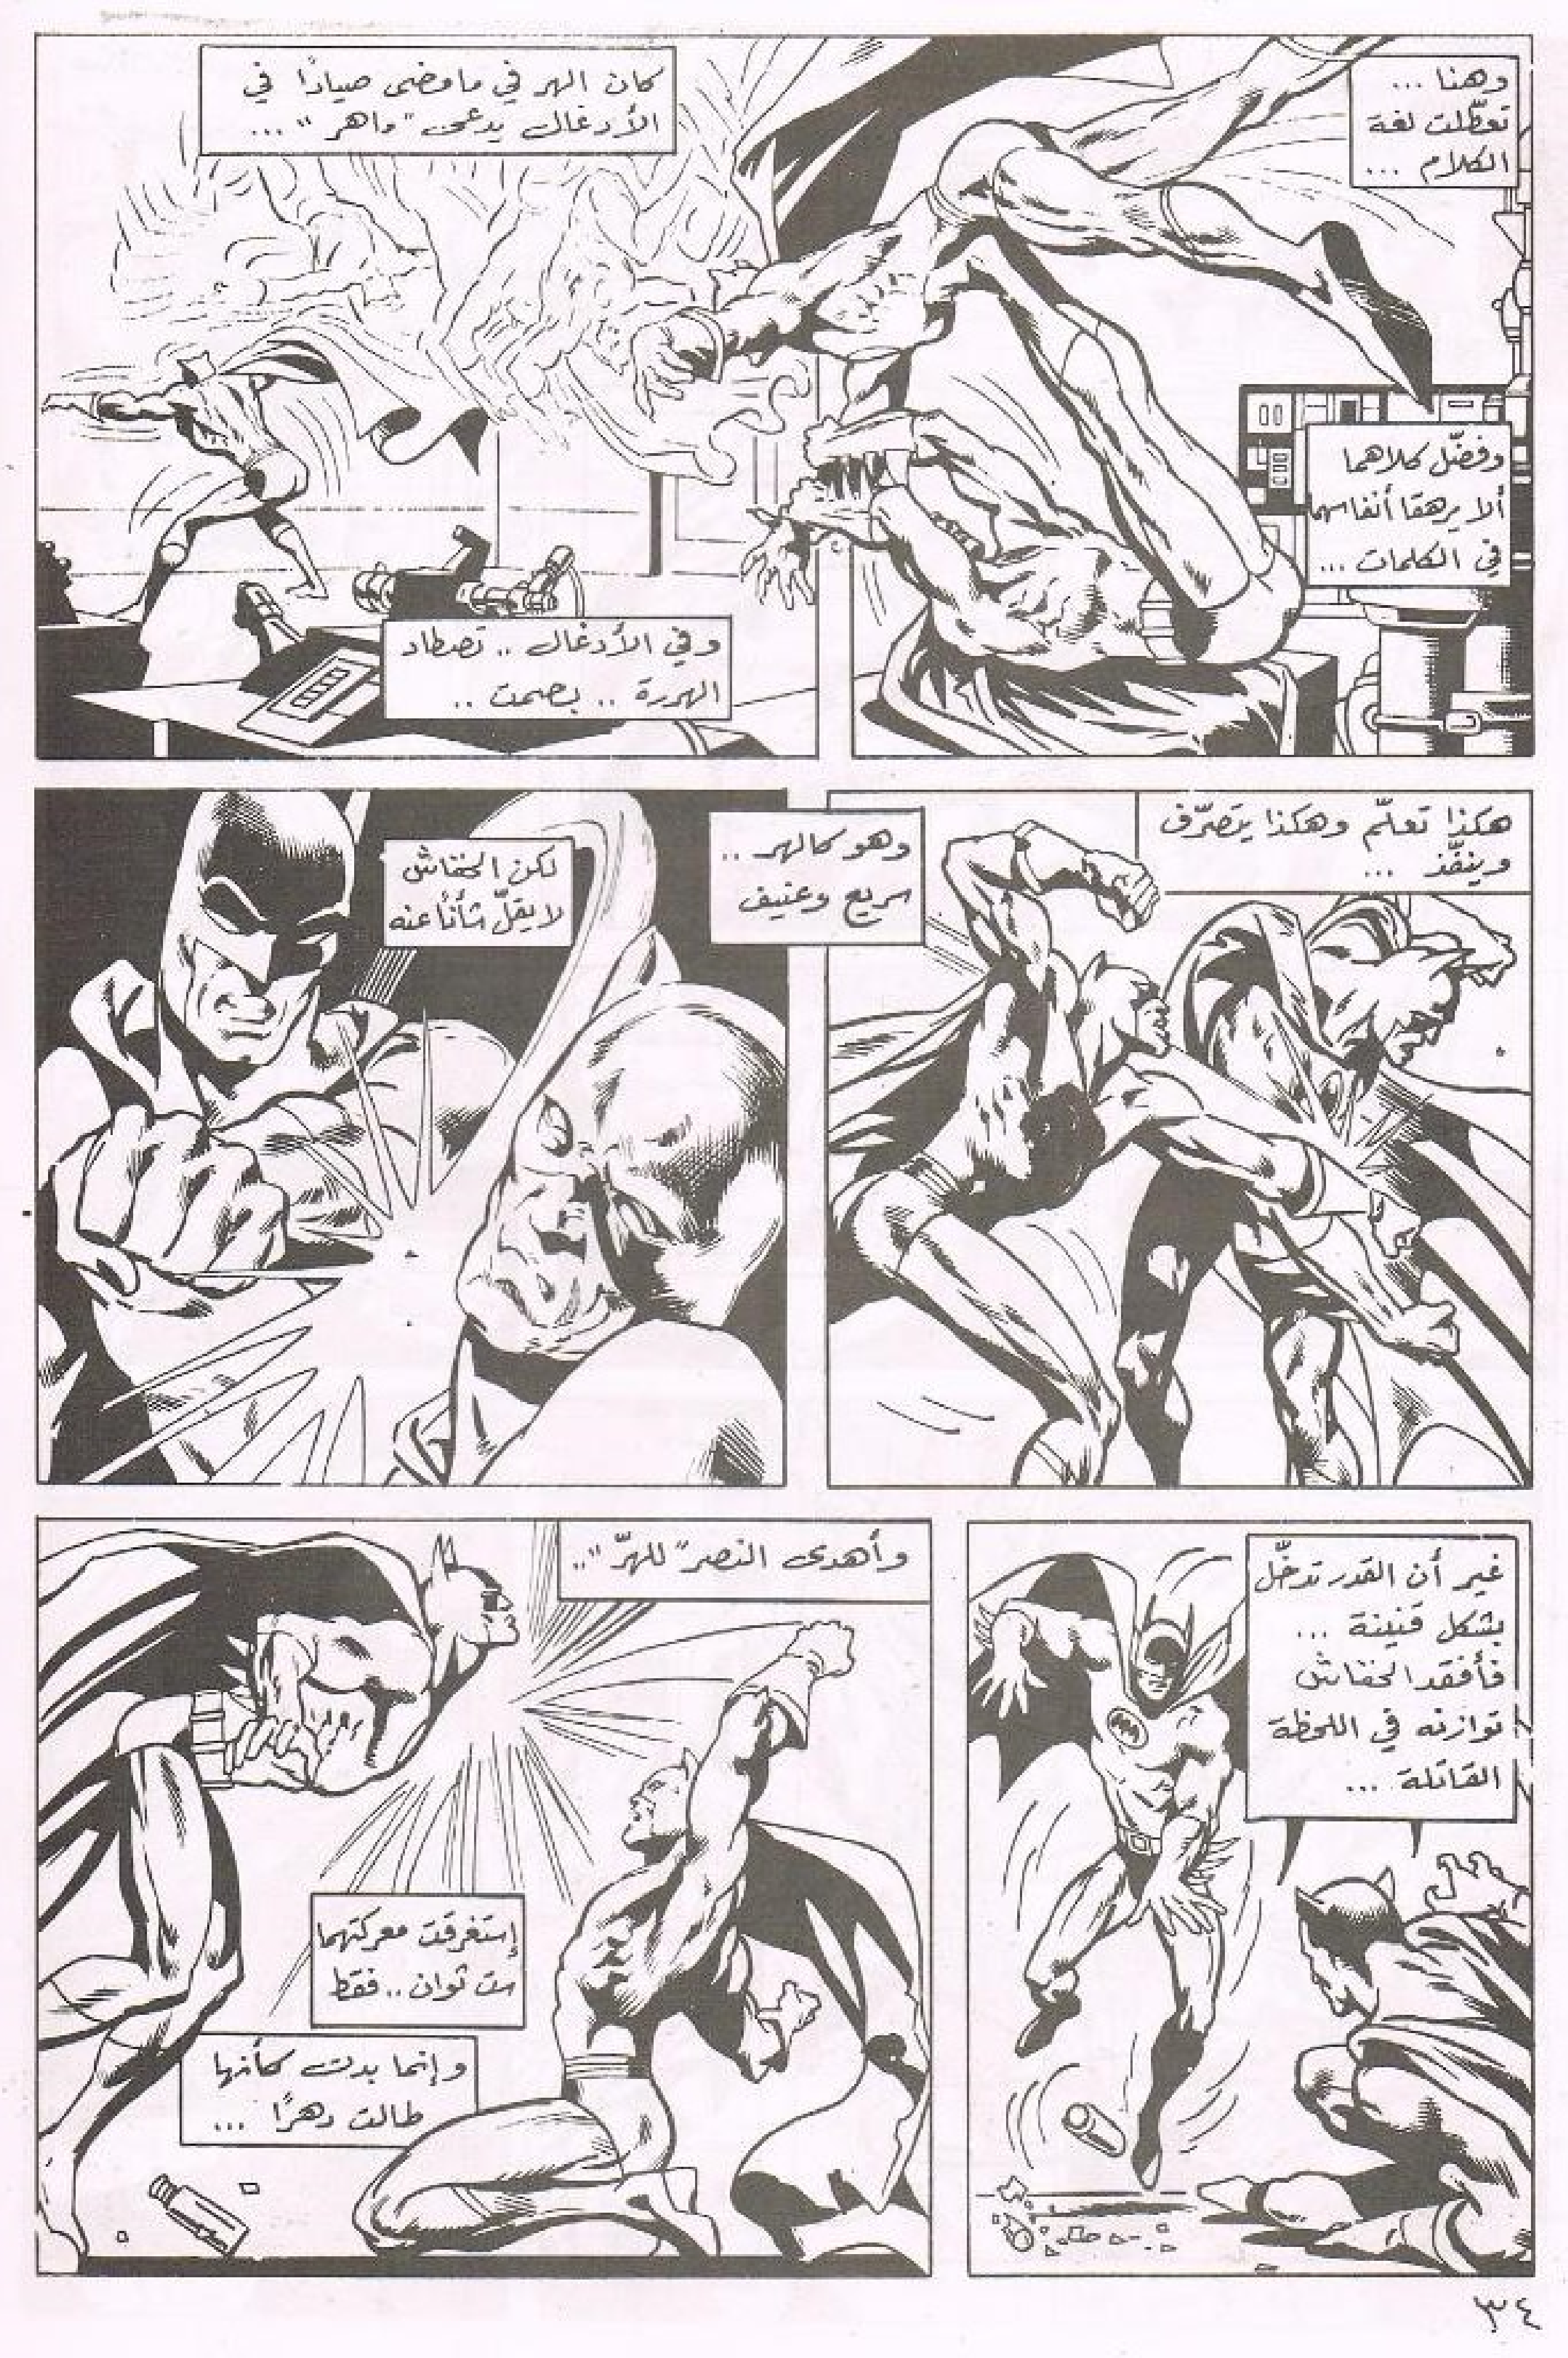 وهنا ...
تعطّلت لغة
الكلام ...
وفضّل كلاهما
ألا يرهقا أنفاسهما
في الكلمات ...
كان الهر في ما مضى صيادًا في
الأدغال يدعى "واهر" ...
وفي الأدغال .. تصطاد
الهررة .. بصمت ..
هكذا تعلّم وهكذا يتصرّف
وينفّذ ...
وهو كالهر ..
سريع وعنيف
لكن الخفاش
لا يقلّ شأنًا عنه
غير أن القدر تدخّل
بشكل قنينة ...
فأفقد الخفاش
توازنه في اللحظة
القاتلة ...
وأهدى النصر "للهرّ" ..
إستغرقت معركتهما
ست ثوان .. فقط
وإنما بدت كأنها
طالت دهرًا ...
٣٤